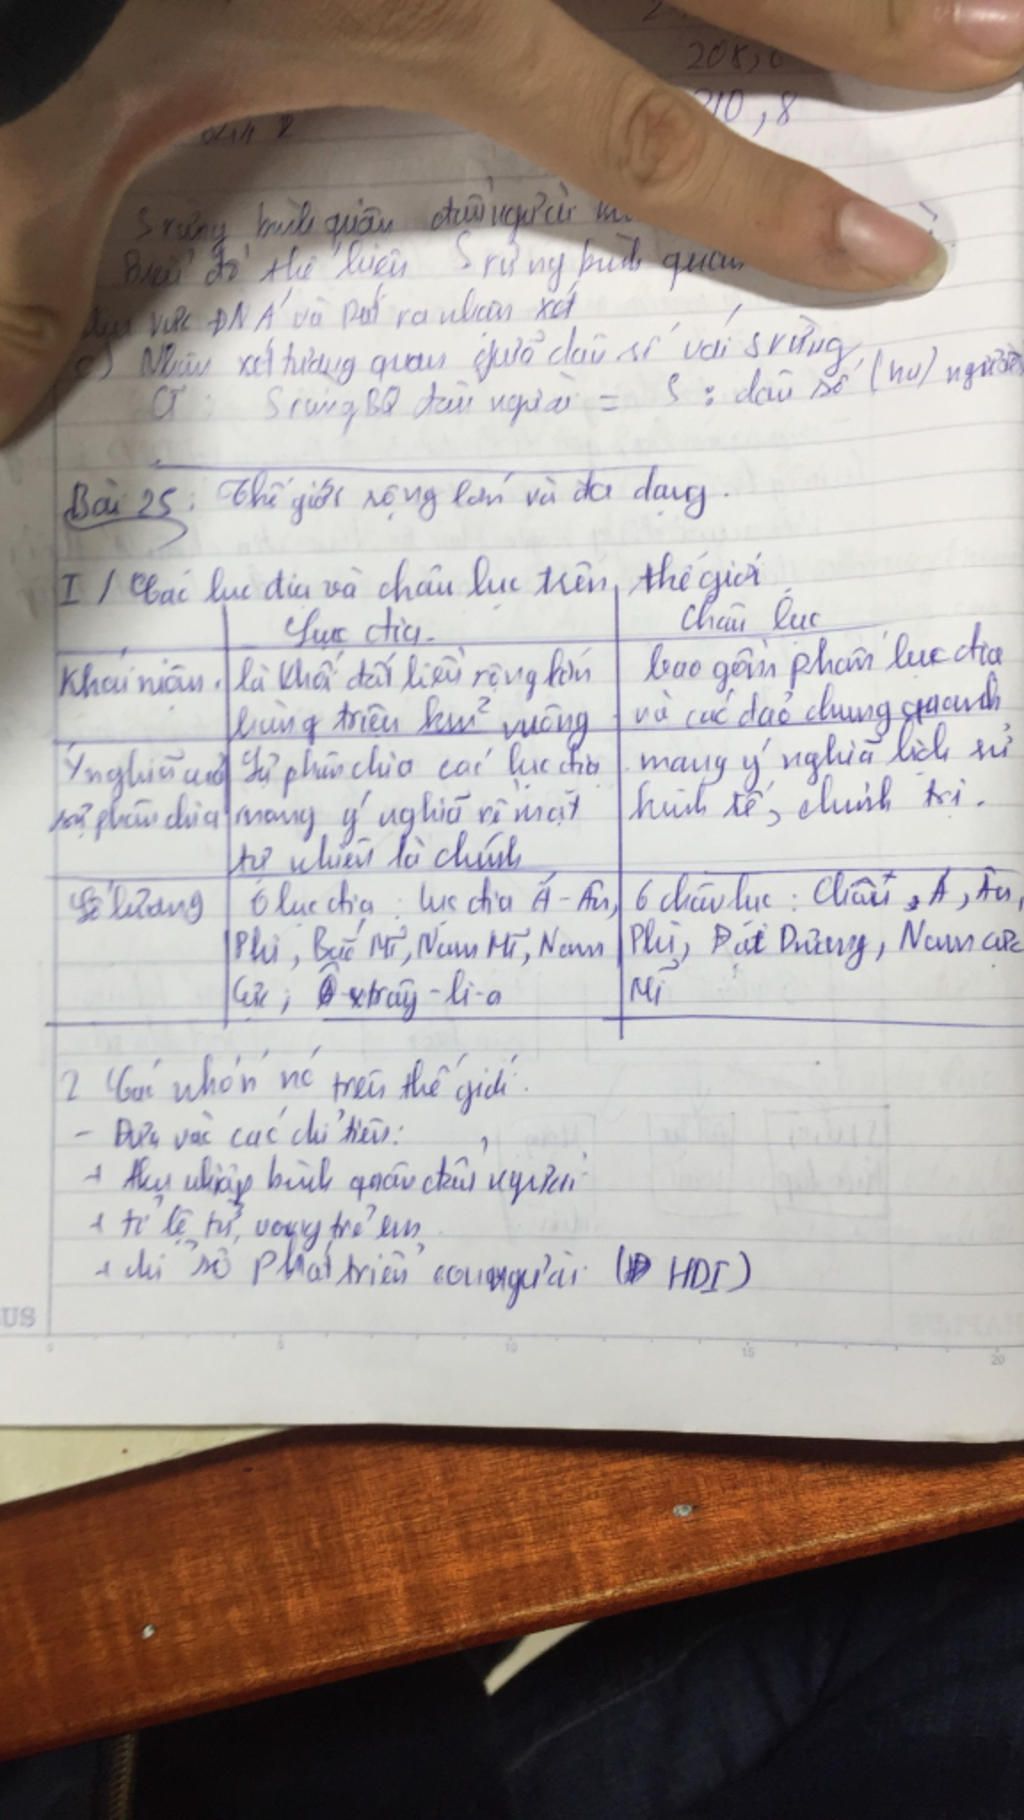 208,
210,8
S rừng bình quân đầu người
Biểu đồ thể hiện S rừng bình quân
vực ĐNÁ và rút ra nhận xét
c) Nhận xét tương quan giữa dân số với S rừng
CT: S rừng BQ đầu người = S : dân số (ha) người
Bài 25: Thế giới rộng lớn và đa dạng.
I / Các lục địa và châu lục trên thế giới.
Lục địa. Châu lục
Khái niệm. là khối đất liền rộng lớn bao gồm phần lục địa
hàng triệu km² vuông và các đảo chung quanh
Ý nghĩa của Sự phân chia các lục địa mang ý nghĩa lịch sử
sự phân chia mang ý nghĩa về mặt kinh tế, chính trị.
tự nhiên là chính
Số lượng 6 lục địa: lục địa Á-Âu, 6 châu lục: Châu Á, Âu,
Phi, Bắc Mĩ, Nam Mĩ, Nam Phi, Đại Dương, Nam cực
Cực; Ôxtrây-li-a Mĩ
2 Các nhóm nc trên thế giới.
- Dựa vào các chỉ tiêu:
+ thu nhập bình quân đầu người
+ tỉ lệ tử vong trẻ em
+ chỉ số phát triển con người (HDI)
US
0 5 10 15 20